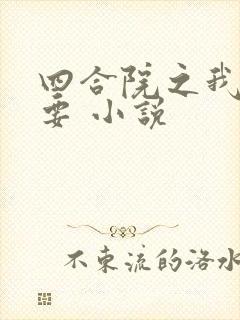 四合院之我
要 小说
不东流的洛水